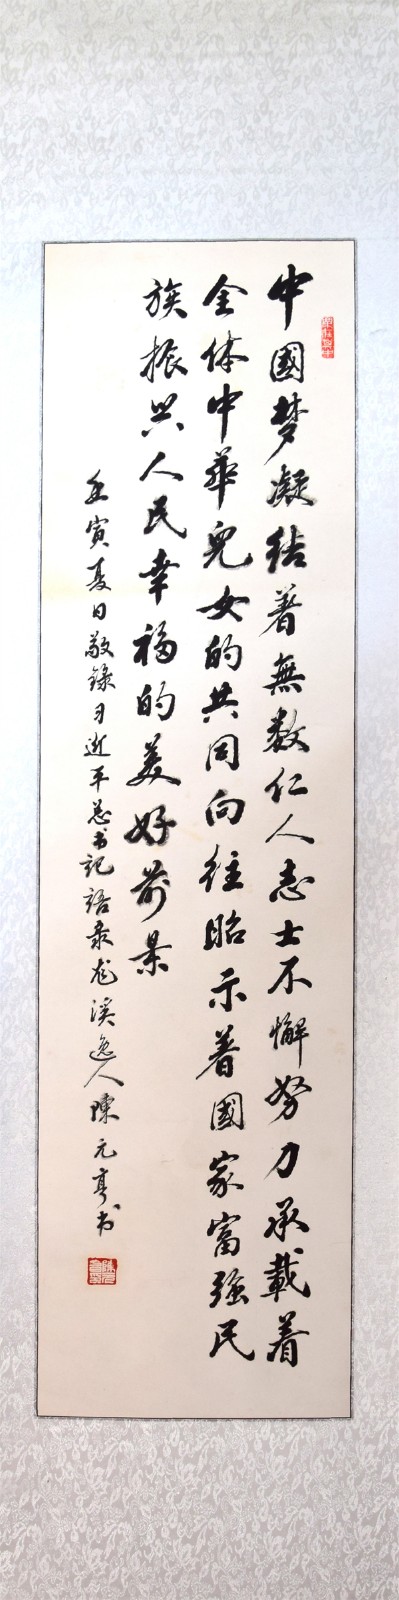 中國梦凝结着無数仁人志士不懈努力承載着
全体中華兒女的共同向往昭示着國家富强民
族振兴人民幸福的美好前景
壬寅夏日敬錄习近平总书記語录龙溪逸人陳元亨书